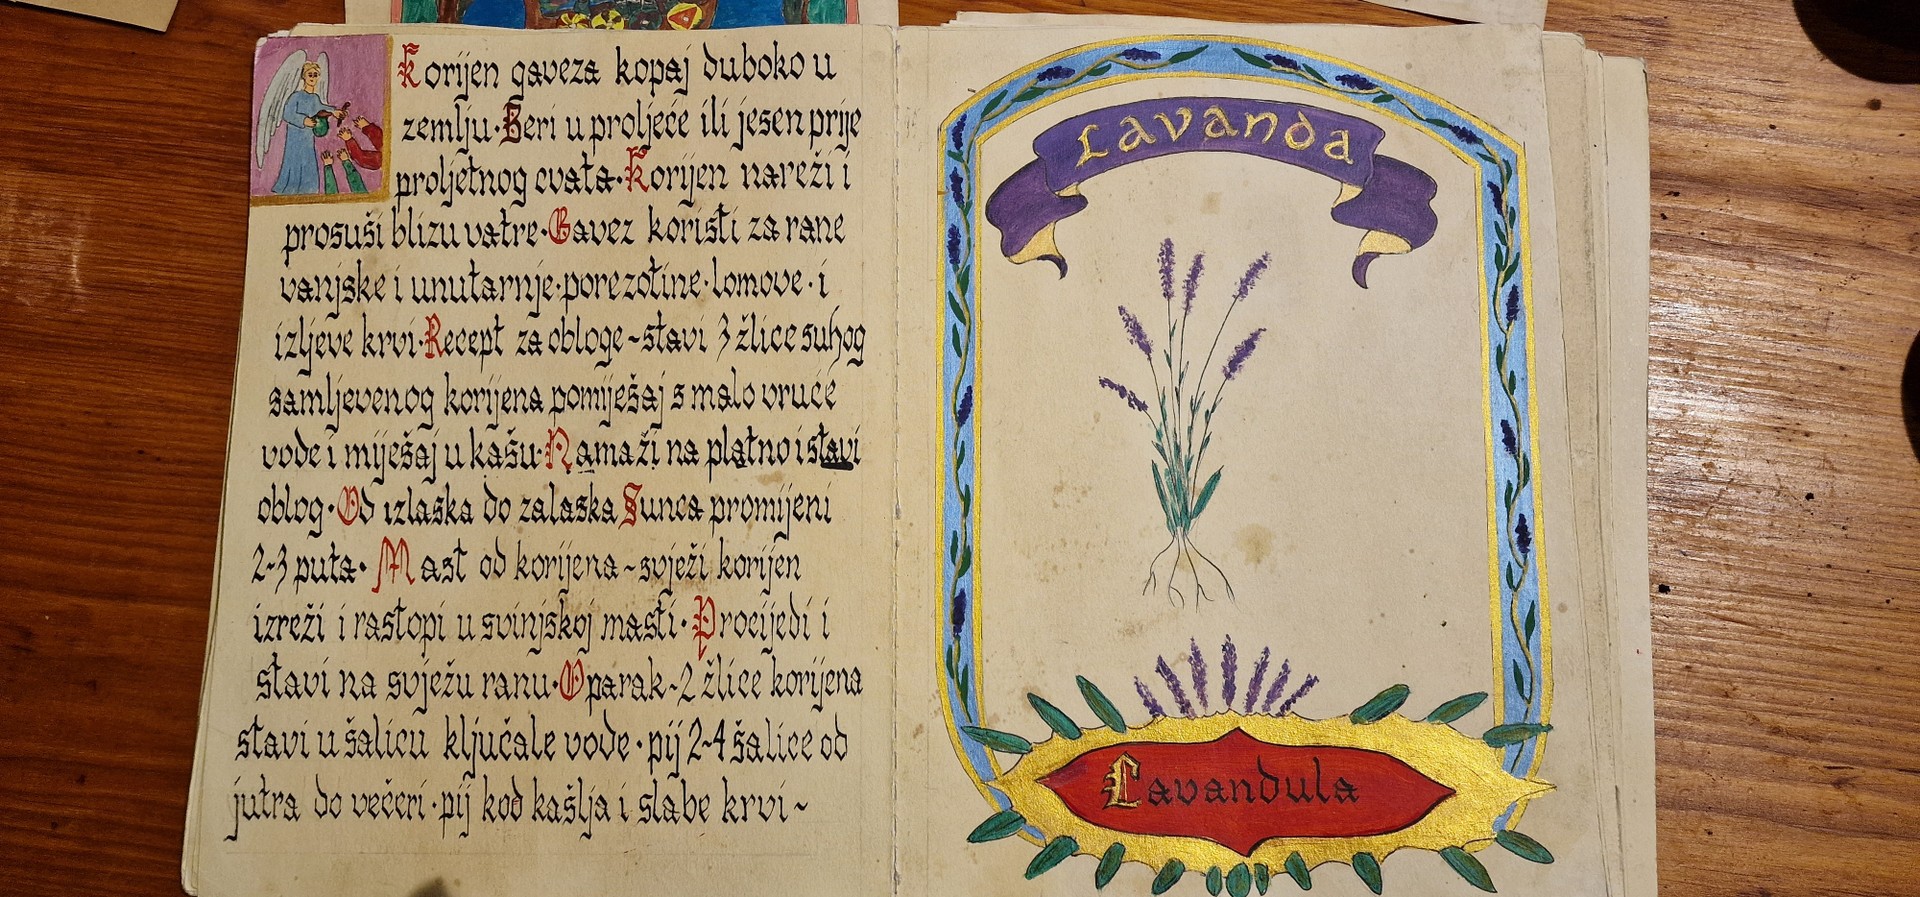 Korijen gaveza kopaj duboko u
zemlju·Beri u proljeće ili jesen prije
proljetnog cvata·Korijen nareži i
prosuši blizu vatre·Gavez koristi za rane
vanjske i unutarnje·porezotine·lomove·i
izljeve krvi·Recept za obloge~stavi 3 žlice suhog
samljevenog korijena pomiješaj s malo vruće
vode i miješaj u kašu·Namaži na platno i stavi
oblog·Od izlaska do zalaska Sunca promijeni
2~3 puta·Mast od korijena~svježi korijen
izreži i rastopi u svinjskoj masti·Procijedi i
stavi na svježu ranu·Oparak~2 žlice korijena
stavi u šalicu ključale vode·pij 2~4 šalice od
jutra do večeri·pij kod kašlja i slabe krvi~
Lavanda
Lavandula